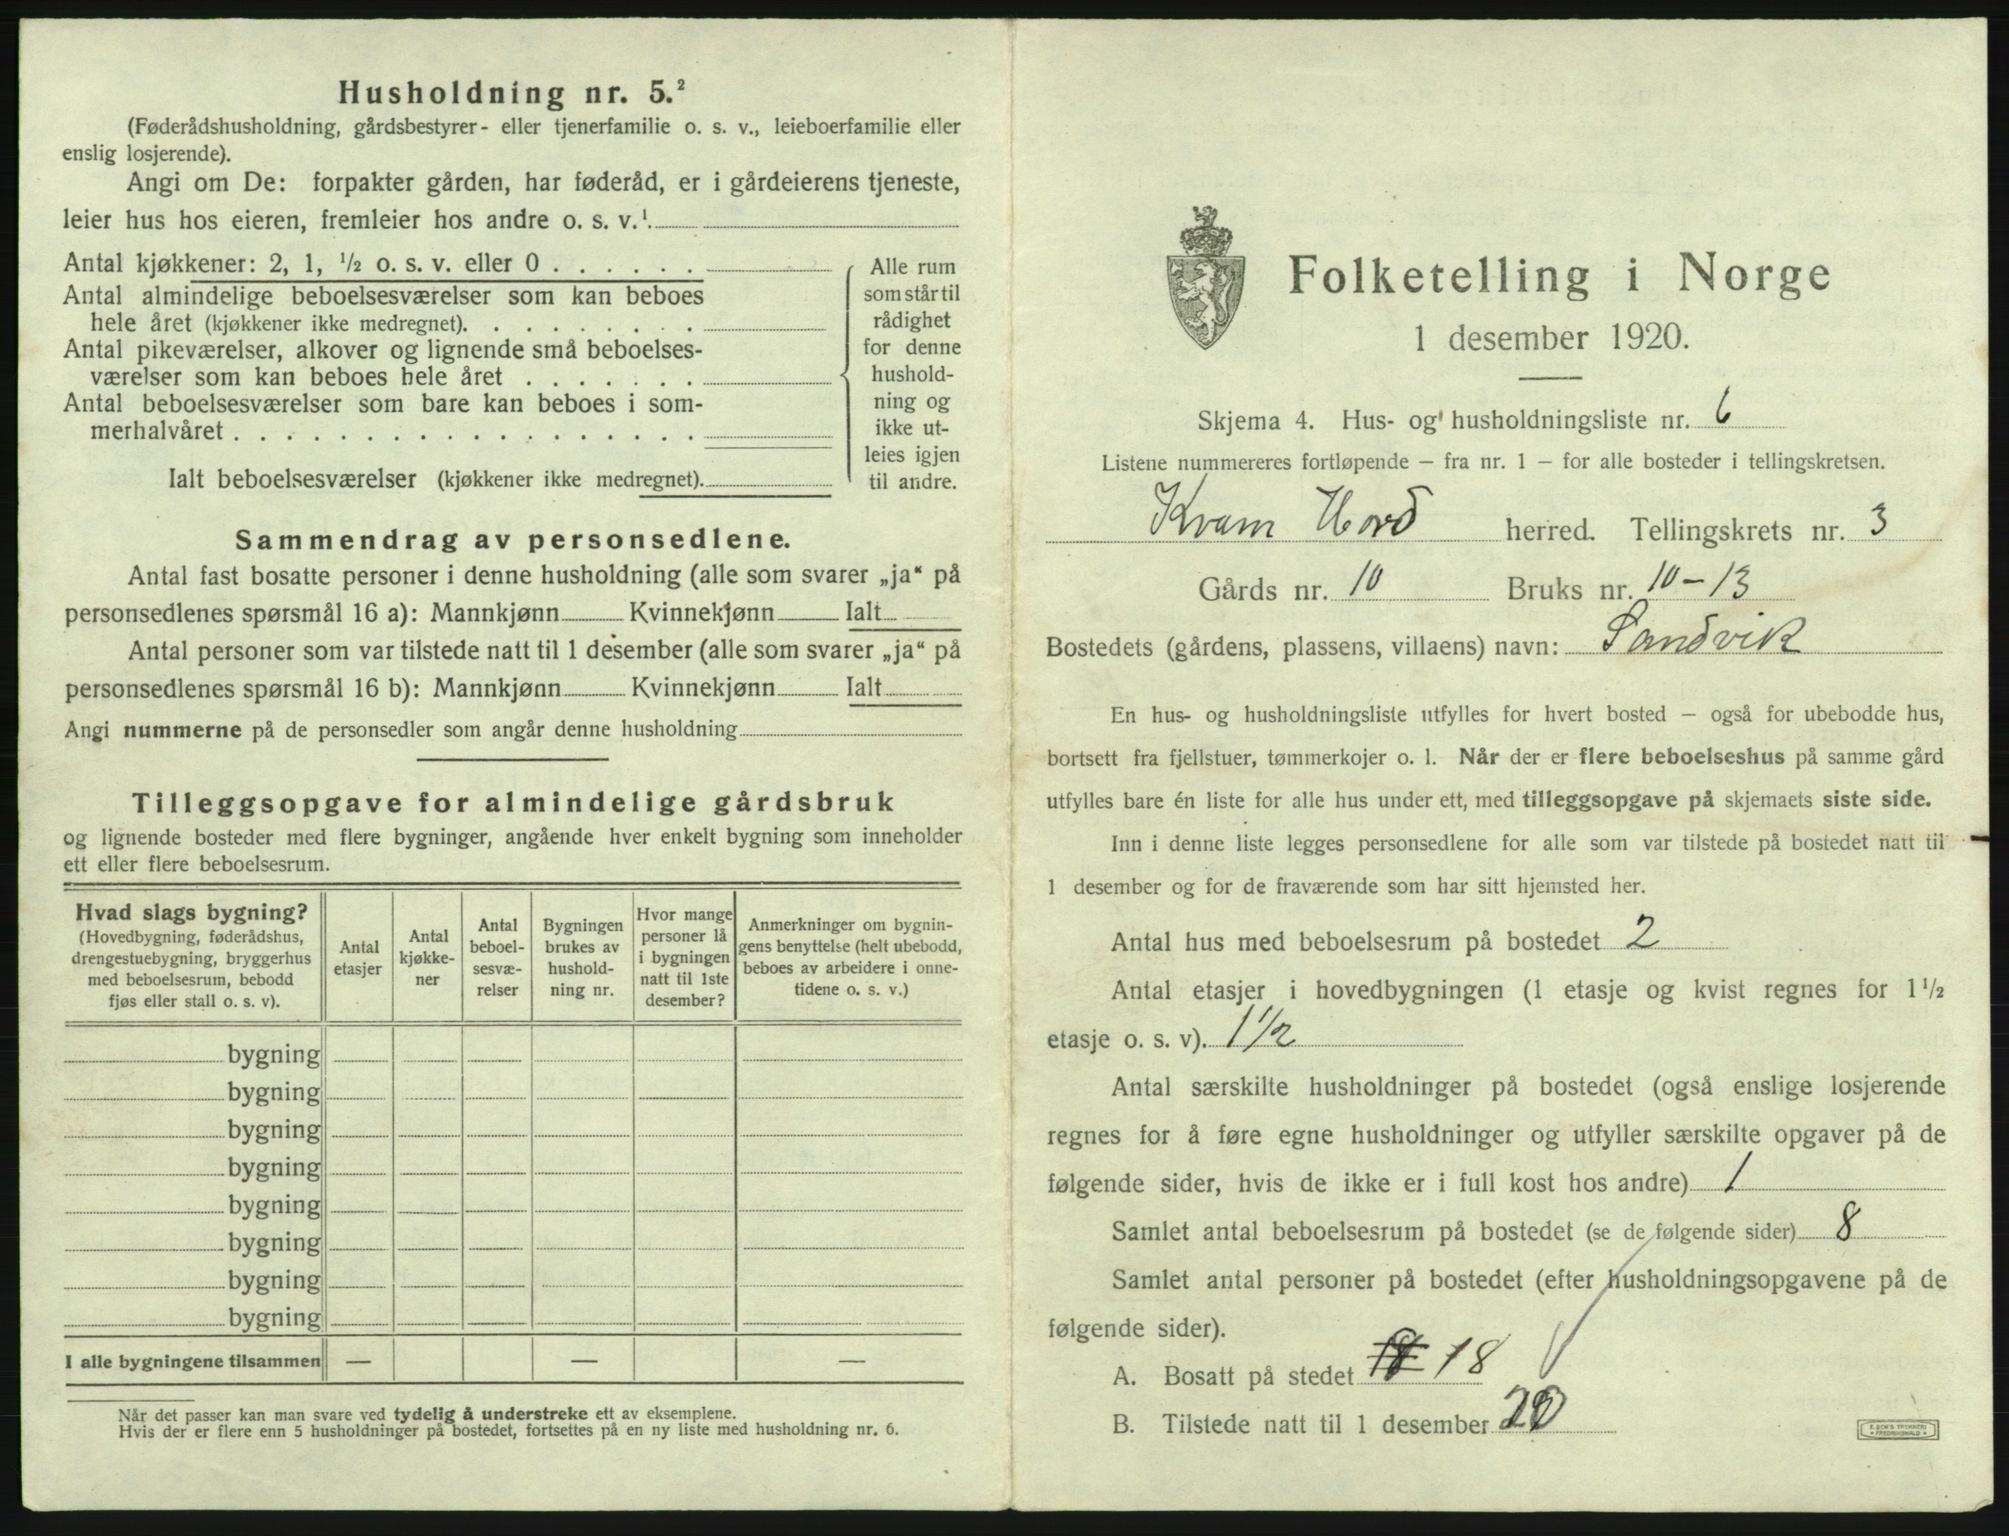 Husholdning nr. 5.²
(Føderådshusholdning, gårdsbestyrer- eller tjenerfamilie o. s. v., leieboerfamilie eller
enslig losjerende).
Angi om De: forpakter gården, har føderåd, er i gårdeierens tjeneste,
leier hus hos eieren, fremleier hos andre o. s. v.¹
Antal kjøkkener: 2, 1, ½ o. s. v. eller 0 . . . . . .
Antal almindelige beboelsesværelser som kan beboes
hele året (kjøkkener ikke medregnet). . . . . . . . .
Antal pikeværelser, alkover og lignende små beboelses-
værelser som kan beboes hele året . . . . . . .
Antal beboelsesværelser som bare kan beboes i som-
merhalvåret . . . . . . . . . . . . . . . . . .
Ialt beboelsesværelser (kjøkkener ikke medregnet).
Alle rum
som står til
rådighet
for denne
hushold-
ning og
ikke ut-
leies igjen
til andre.
Sammendrag av personsedlene.
Antal fast bosatte personer i denne husholdning (alle som svarer „ja“ på
personsedlenes spørsmål 16 a): Mannkjønn Kvinnekjønn Ialt
Antal personer som var tilstede natt til 1 desember (alle som svarer „ja“ på
personsedlenes spørsmål 16 b): Mannkjønn Kvinnekjønn Ialt
Angi nummerne på de personsedler som angår denne husholdning
Tilleggsopgave for almindelige gårdsbruk
og lignende bosteder med flere bygninger, angående hver enkelt bygning som inneholder
ett eller flere beboelsesrum.
Hvad slags bygning?
(Hovedbygning, føderådshus,
drengestuebygning, bryggerhus
med beboelsesrum, bebodd
fjøs eller stall o. s. v).
Antal
etasjer
Antal
kjøkke-
ner
Antal
beboel-
sesvæ-
relser
Bygningen
brukes av
hushold-
ning nr.
Hvor mange
personer lå
i bygningen
natt til 1ste
desember?
Anmerkninger om bygnin-
gens benyttelse (helt ubebodd,
beboes av arbeidere i onne-
tidene o. s. v.)
bygning
bygning
bygning
bygning
bygning
bygning
bygning
bygning
I alle bygningene tilsammen — — —
Når det passer kan man svare ved tydelig å understreke ett av eksemplene.
Hvis der er flere enn 5 husholdninger på bostedet, fortsettes på en ny liste med husholdning nr. 6.
Folketelling i Norge
1 desember 1920.
Skjema 4. Hus- og husholdningsliste nr. 6
Listene nummereres fortløpende – fra nr. 1 – for alle bosteder i tellingskretsen.
Kvam Hord herred. Tellingskrets nr. 3
Gårds nr. 10 Bruks nr. 10-13
Bostedets (gårdens, plassens, villaens) navn: Sandvik
En hus- og husholdningsliste utfylles for hvert bosted – også for ubebodde hus,
bortsett fra fjellstuer, tømmerkojer o. l. Når der er flere beboelseshus på samme gård
utfylles bare én liste for alle hus under ett, med tilleggsopgave på skjemaets siste side.
Inn i denne liste legges personsedlene for alle som var tilstede på bostedet natt til
1 desember og for de fraværende som har sitt hjemsted her.
Antal hus med beboelsesrum på bostedet 2
Antal etasjer i hovedbygningen (1 etasje og kvist regnes for 1 ½
etasje o. s. v). 1 ½
Antal særskilte husholdninger på bostedet (også enslige losjerende
regnes for å føre egne husholdninger og utfyller særskilte opgaver på de
følgende sider, hvis de ikke er i full kost hos andre) 1
Samlet antal beboelsesrum på bostedet (se de følgende sider) 8
Samlet antal personer på bostedet (efter husholdningsopgavene på de
følgende sider).
A. Bosatt på stedet 18
B. Tilstede natt til 1 desember 20
E. SEM'S TRYKKERI
FREDRIKSHALD